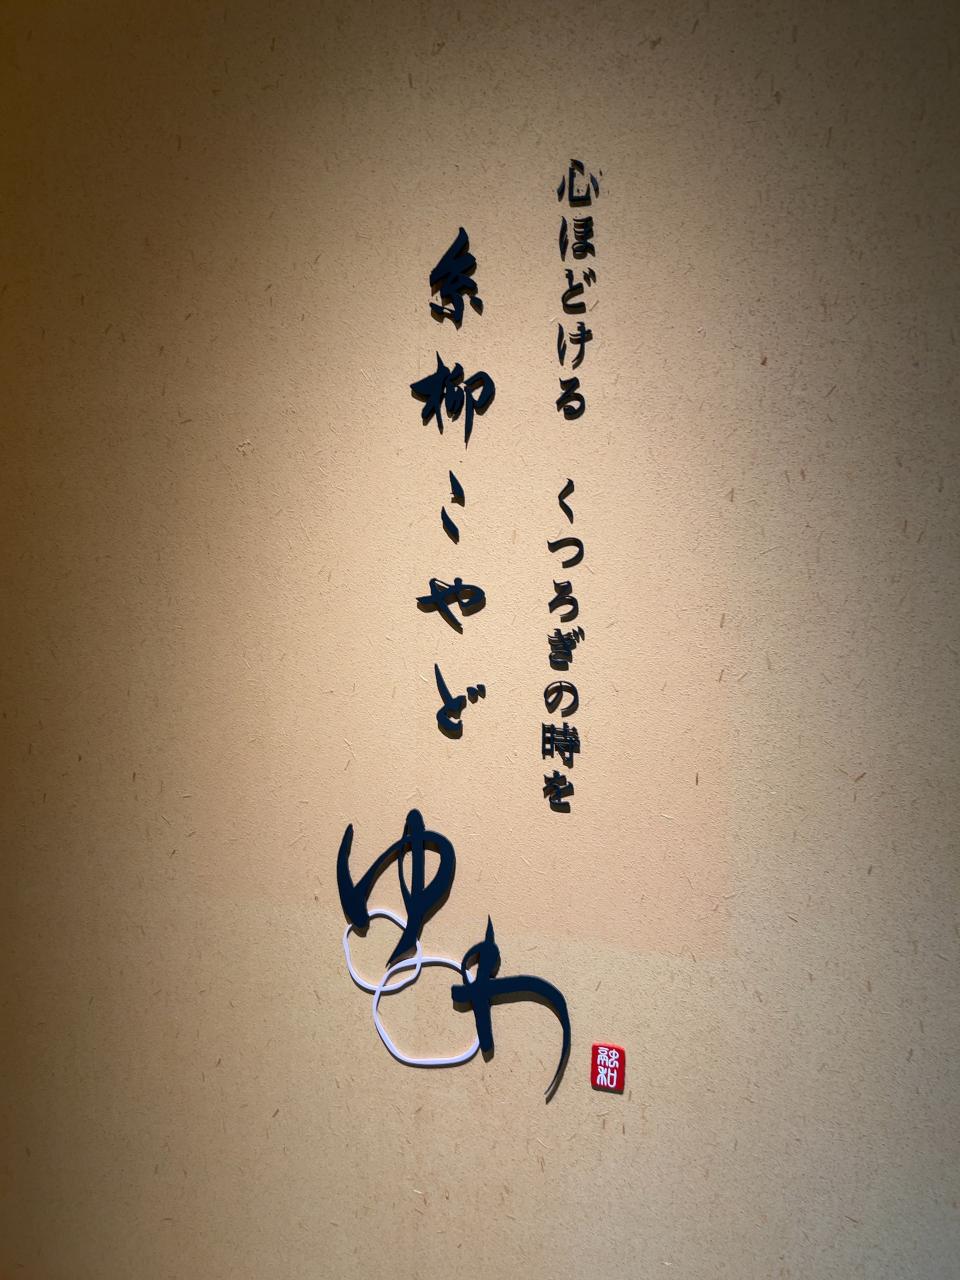 心ほどける くつろぎの時を
糸柳こやど
ゆわ